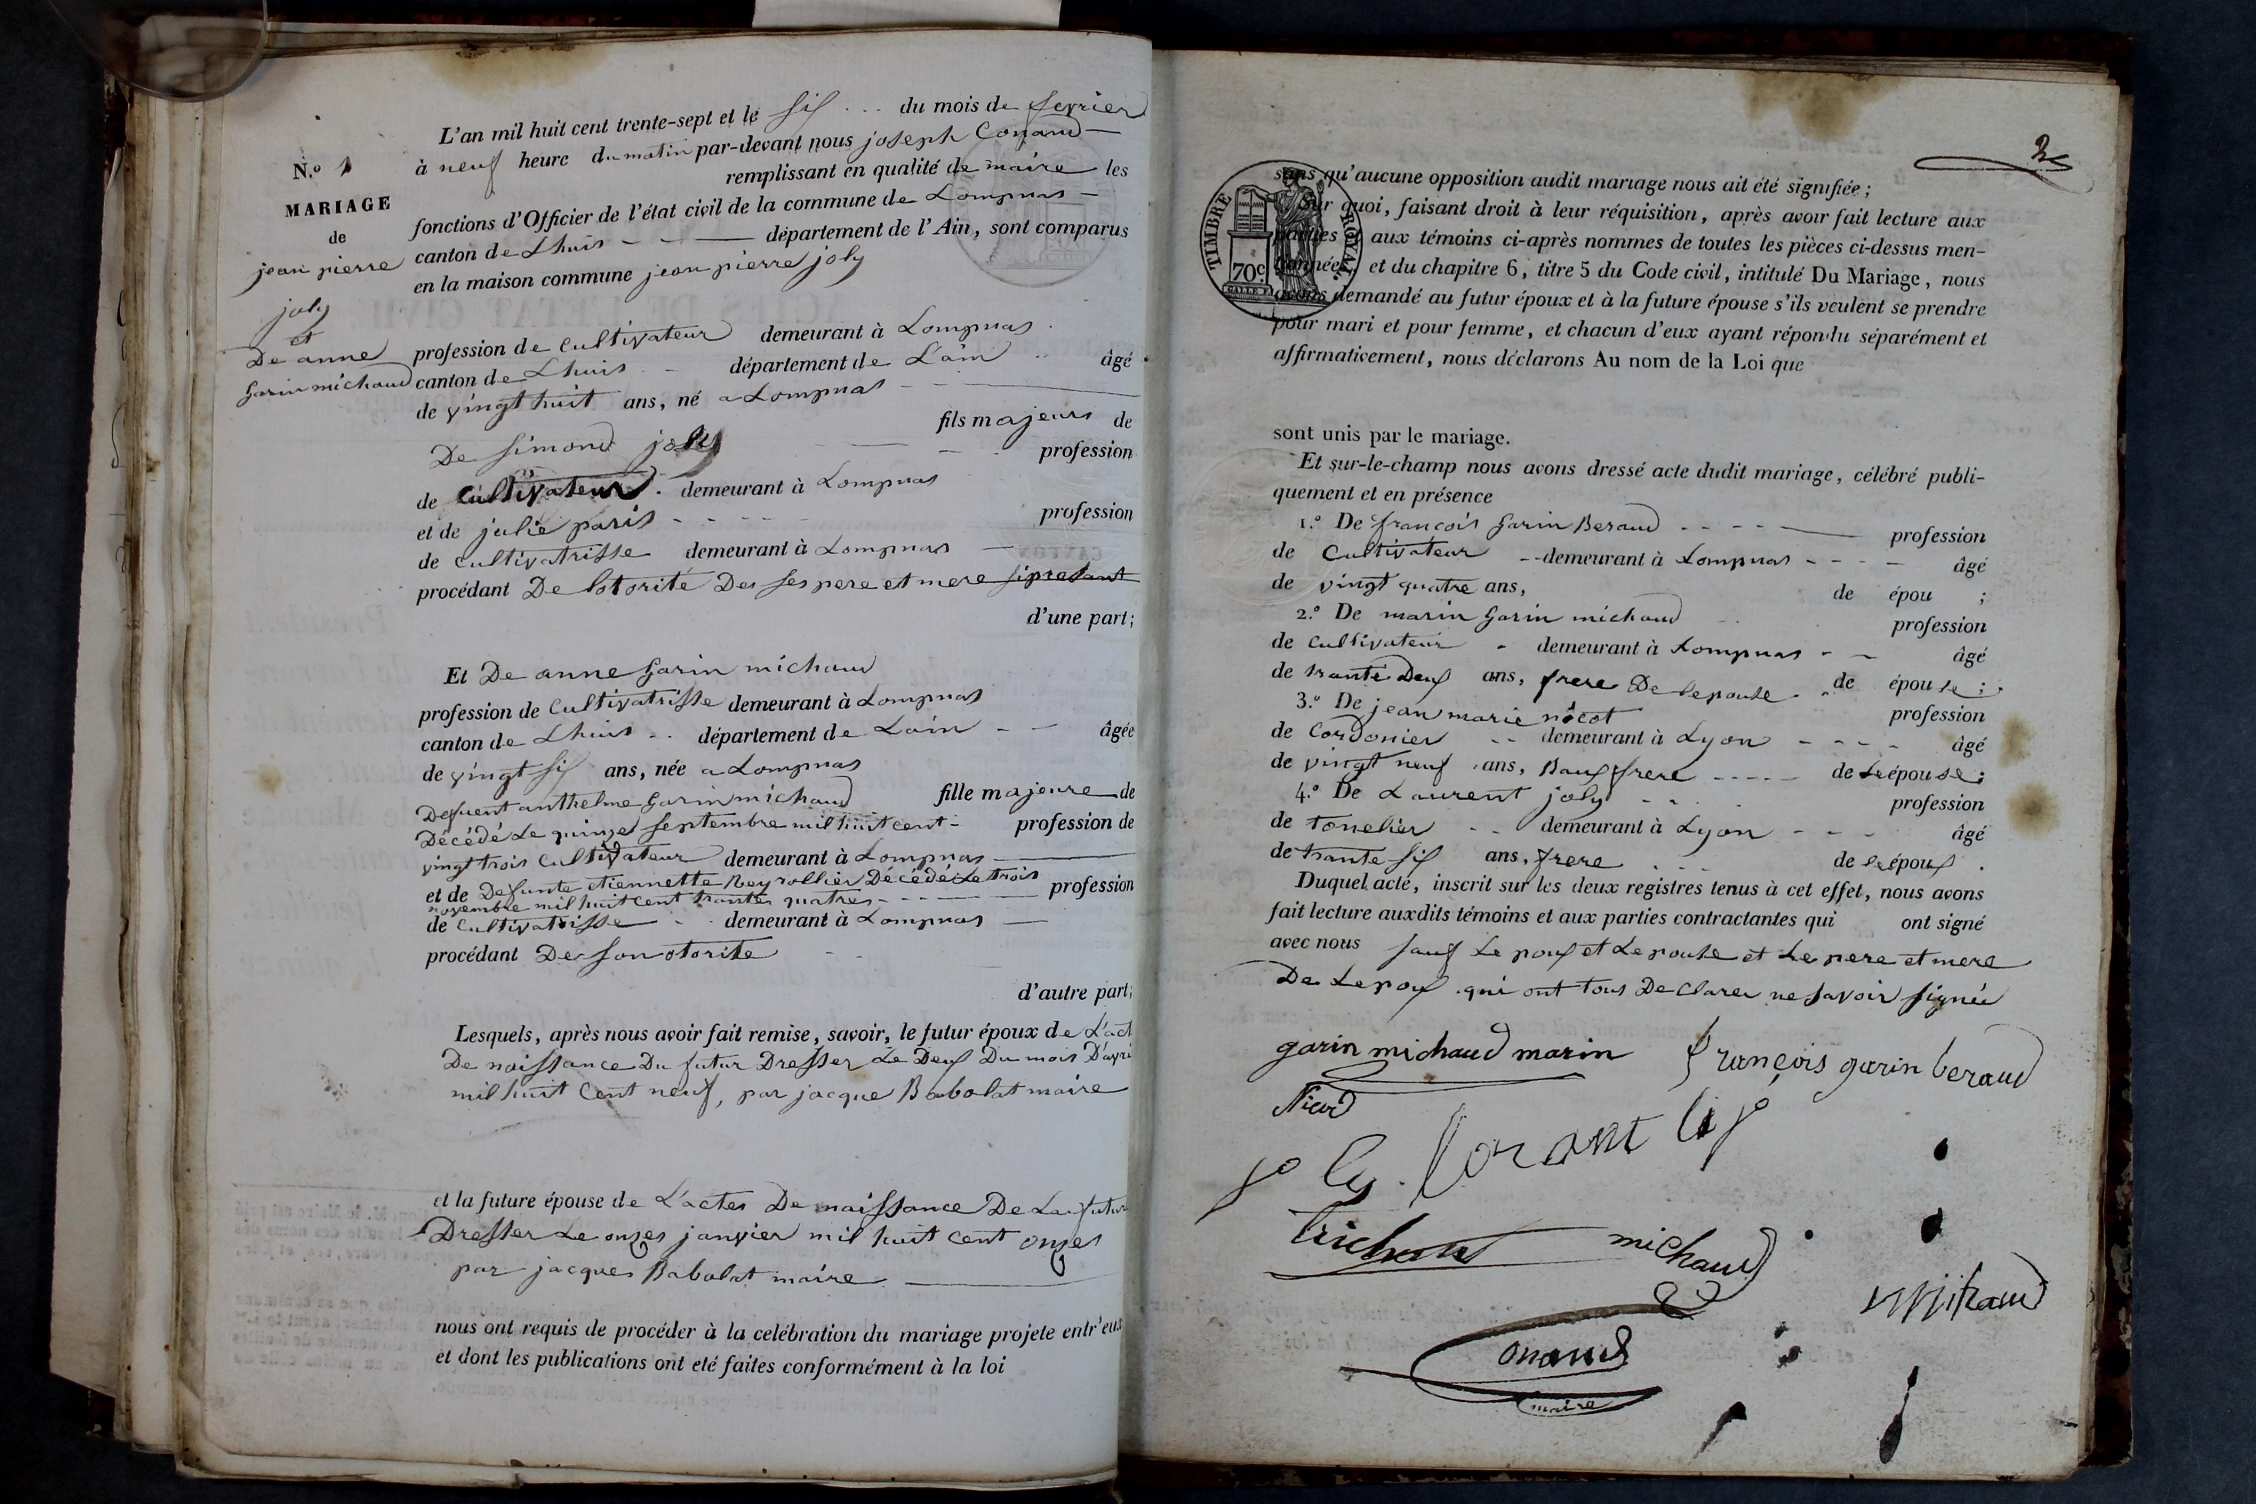 N.º 1
MARIAGE
de
jean pierre
joly
et
De anne
garin michaud
L'an mil huit cent trente-sept et le six du mois de fevrier
à neuf heure du matin par-devant nous joseph Conand
remplissant en qualité de maire les
fonctions d'Officier de l'état civil de la commune de Lompnas
canton de Lhuis département de l'Ain, sont comparus
en la maison commune jean pierre joly
profession de cultivateur demeurant à Lompnas
canton de Lhuis département de Lain âgé
de vingt huit ans, né a Lompnas
fils majeurs de
De simond joly
profession
de Cultivateur demeurant à Lompnas
et de julie paris profession
de cultivatrisse demeurant à Lompnas
procédant De lotorité Des ses pere et mere si presant
d'une part;
Et De anne garin michaud
profession de Cultivatrisse demeurant à Lompnas
canton de Lhuis département de Lain âgée
de vingt six ans, née a Lompnas
Defuent anthelme garin michaud fille majeure de
Décédé Le quinze septembre mil huit cent profession de
vingt trois Cultivateur demeurant à Lompnas
et de Defunte etiennette Reyrollier Décédé Le trois profession
novembre mil huit cent trantes quatres
de Cultivatrisse demeurant à Lompnas
procédant De son otorite
d'autre part;
Lesquels, après nous avoir fait remise, savoir, le futur époux de L'act
De naissance Du futur Dresser Le Deux Du mois D'avri
mil huit Cent neuf, par jacque Babolat maire
et la future épouse de L'actes De naissance De La futur
Dresser Le onzes janvier mil huit cent onzes
par jacques Babolat maire
nous ont requis de procéder à la celébration du mariage projete entr'eux
et dont les publications ont eté faites conformément à la loi
2
TIMBRE ROYAL
70c
sans qu'aucune opposition audit mariage nous ait été signifiée;
Sur quoi, faisant droit à leur réquisition, après avoir fait lecture aux
parties et aux témoins ci-après nommes de toutes les pièces ci-dessus men-
tionnées, et du chapitre 6, titre 5 du Code civil, intitulé Du Mariage, nous
avons demandé au futur époux et à la future épouse s'ils veulent se prendre
pour mari et pour femme, et chacun d'eux ayant répondu séparément et
affirmativement, nous déclarons Au nom de la Loi que
sont unis par le mariage.
Et sur-le-champ nous avons dressé acte dudit mariage, célébré publi-
quement et en présence
1.º De françois garin Beraud profession
de Cultivateur demeurant à Lompnas âgé
de vingt quatre ans, de épou ;
2.º De marin garin michaud profession
de cultivateur demeurant à Lompnas âgé
de trante Deux ans, frere De lepouse de épou se;
3.º De jean marie nicot profession
de Cordonier demeurant à Lyon âgé
de vingt neuf ans, Baux frere de lépouse;
4.º De Laurent joly profession
de tonelier demeurant à Lyon âgé
de trante six ans, frere de lépoux.
Duquel acte, inscrit sur les deux registres tenus à cet effet, nous avons
fait lecture auxdits témoins et aux parties contractantes qui ont signé
avec nous sauf Le poux et Le pouse et Le pere et mere
De Lepoux qui ont tous De Clarer ne savoir signée
garin michaud marin françois garin beraud
Nicod
joly lorant
michaud
Conand
maire